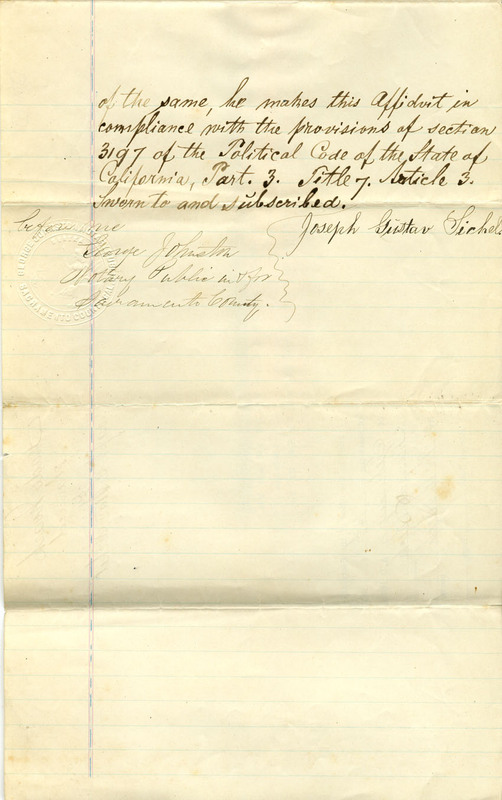 of the same, he makes this Affidvit in
compliance with the provisions of section
3197 of the Political Code of the State of
California, Part. 3. Title 7. Article 3.
Sworn to and subscribed.
before me
Joseph Gustav Sichel
George Johnston
Notary Public in & for
Sacramento County.